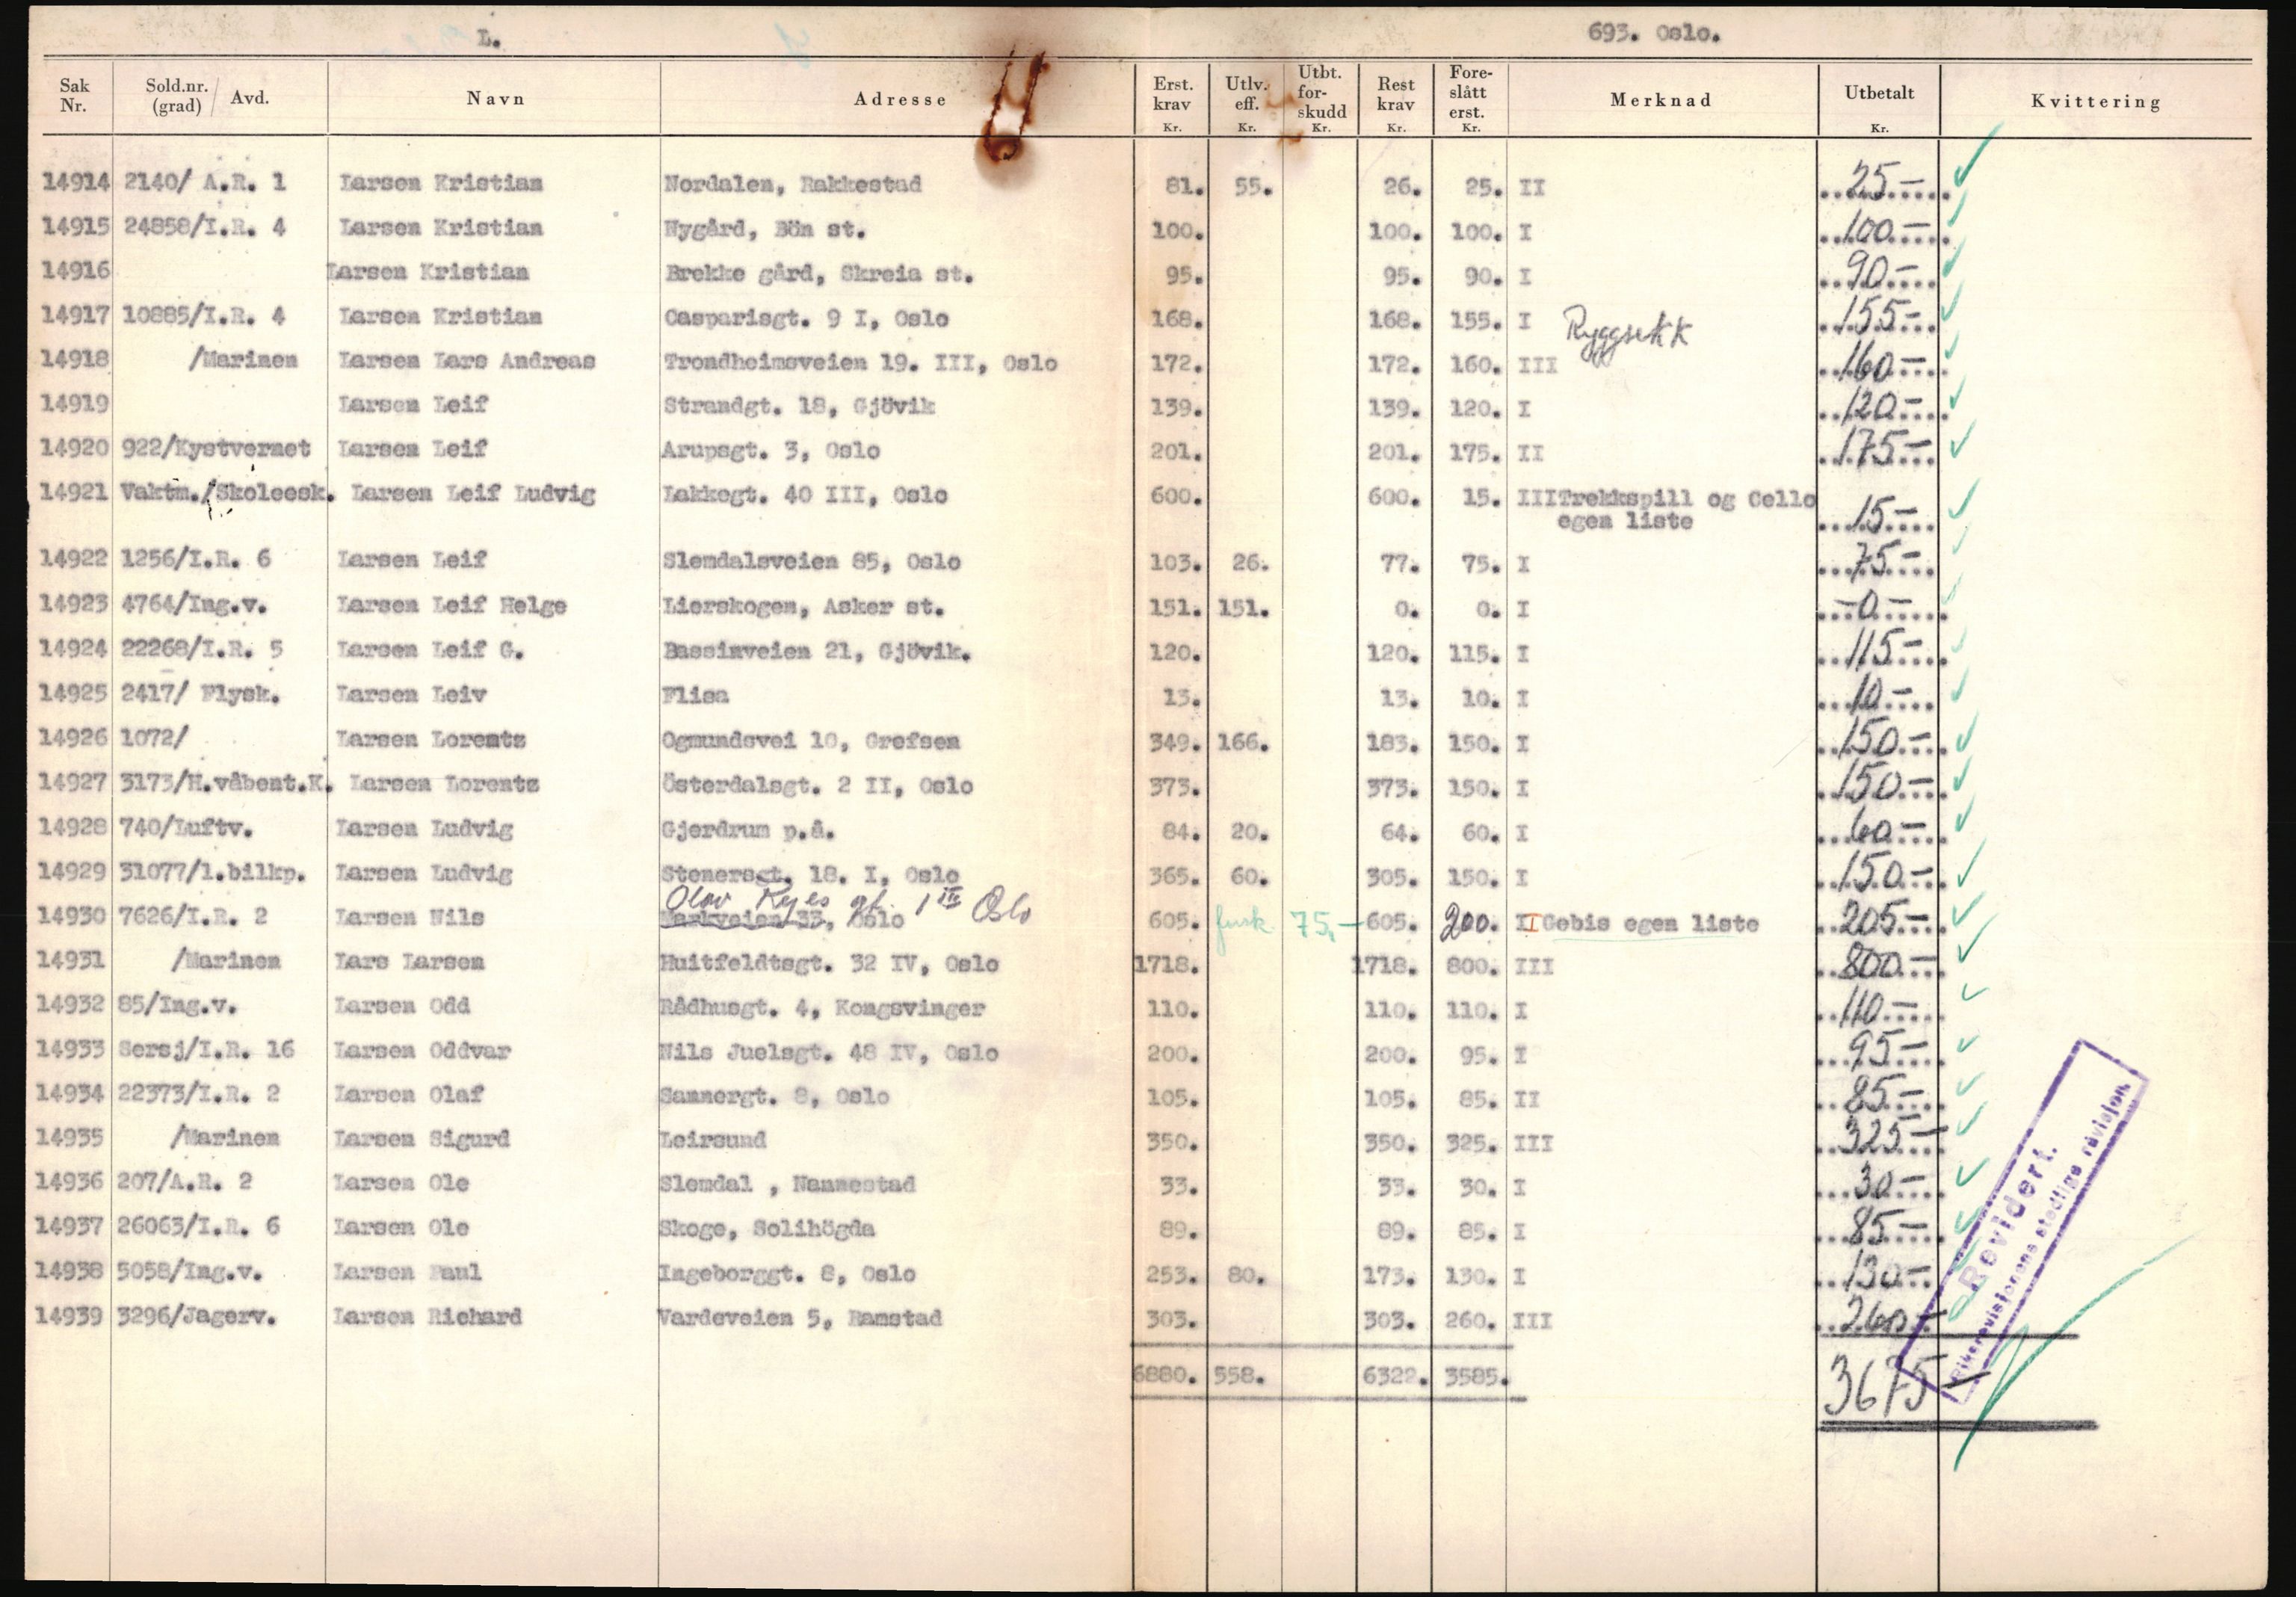 L. 693. Oslo.
Sak Nr. Sold.nr. (grad) / Avd. Navn Adresse Erst. krav Kr. Utlv. eff. Kr. Utbt. for- skudd Kr. Rest krav Kr. Fore- slått erst. Kr. Merknad Utbetalt Kr. Kvittering
14914 2140/ A.R. 1 Larsen Kristian Nordalen, Rakkestad 81. 55. 26. 25. II 25-
14915 24858/I.R. 4 Larsen Kristian Nygård, Bön st. 100. 100. 100. I 100.-
14916 Larsen Kristian Brekke gård, Skreia st. 95. 95. 90. I 90-
14917 10885/I.R. 4 Larsen Kristian Casparisgt. 9 I, Oslo 168. 168. 155. I Ryggsekk 155-
14918 /Marinen Larsen Lars Andreas Trondheimsveien 19. III, Oslo 172. 172. 160. III 160-
14919 Larsen Leif Strandgt. 18, Gjövik 139. 139. 120. I 120-
14920 922/Kystvernet Larsen Leif Arupsgt. 3, Oslo 201. 201. 175. II 175-
14921 Vaktm./Skoleesk. Larsen Leif Ludvig Lakkegt. 40 III, Oslo 600. 600. 15. III Trekkspill og Cello
egen liste 15-
14922 1256/I.R. 6 Larsen Leif Slemdalsveien 85, Oslo 103. 26. 77. 75. I 75-
14923 4764/Ing.v. Larsen Leif Helge Lierskogen, Asker st. 151. 151. 0. 0. I -0-
14924 22268/I.R. 5 Larsen Leif G. Bassinveien 21, Gjövik. 120. 120. 115. I 115-
14925 2417/ Flysk. Larsen Leiv Flisa 13. 13. 10. I 10-
14926 1072/ Larsen Lorentz Ogmundsvei 10, Grefsen 349. 166. 183. 150. I 150-
14927 3173/H.våbent.K. Larsen Lorentz Österdalsgt. 2 II, Oslo 373. 373. 150. I 150-
14928 740/Luftv. Larsen Ludvig Gjerdrum p.å. 84. 20. 64. 60. I 60-
14929 31077/1.bilkp. Larsen Ludvig Stenersgt. 18. I, Oslo 365. 60. 305. 150. I 150-
Olav Ryes gt. 1 III Oslo
14930 7626/I.R. 2 Larsen Nils Markveien 33, Oslo 605. 75,- 605. 200. II Gebis egen liste 205-
14931 /Marinen Lars Larsen Huitfeldtsgt. 32 IV, Oslo 1718. 1718. 800. III 800-
14932 85/Ing.v. Larsen Odd Rådhusgt. 4, Kongsvinger 110. 110. 110. I 110-
14933 Sersj/I.R. 16 Larsen Oddvar Nils Juelsgt. 48 IV, Oslo 200. 200. 95. I 95-
14934 22373/I.R. 2 Larsen Olaf Sannergt. 8, Oslo 105. 105. 85. II 85-
14935 /Marinen Larsen Sigurd Leirsund 350. 350. 325. III 325-
14936 207/A.R. 2 Larsen Ole Slemdal , Nannestad 33. 33. 30. I 30-
14937 26063/I.R. 6 Larsen Ole Skoge, Solihögda 89. 89. 85. I 85-
14938 5058/Ing.v. Larsen Paul Ingeborggt. 8, Oslo 253. 80. 173. 130. I 130-
14939 3296/Jagerv. Larsen Richard Vardeveien 5, Ramstad 303. 303. 260. III 260-
6880. 558. 6322. 3585. 3675-
Revidert.
Riksrevisjonens stedlige revisjon